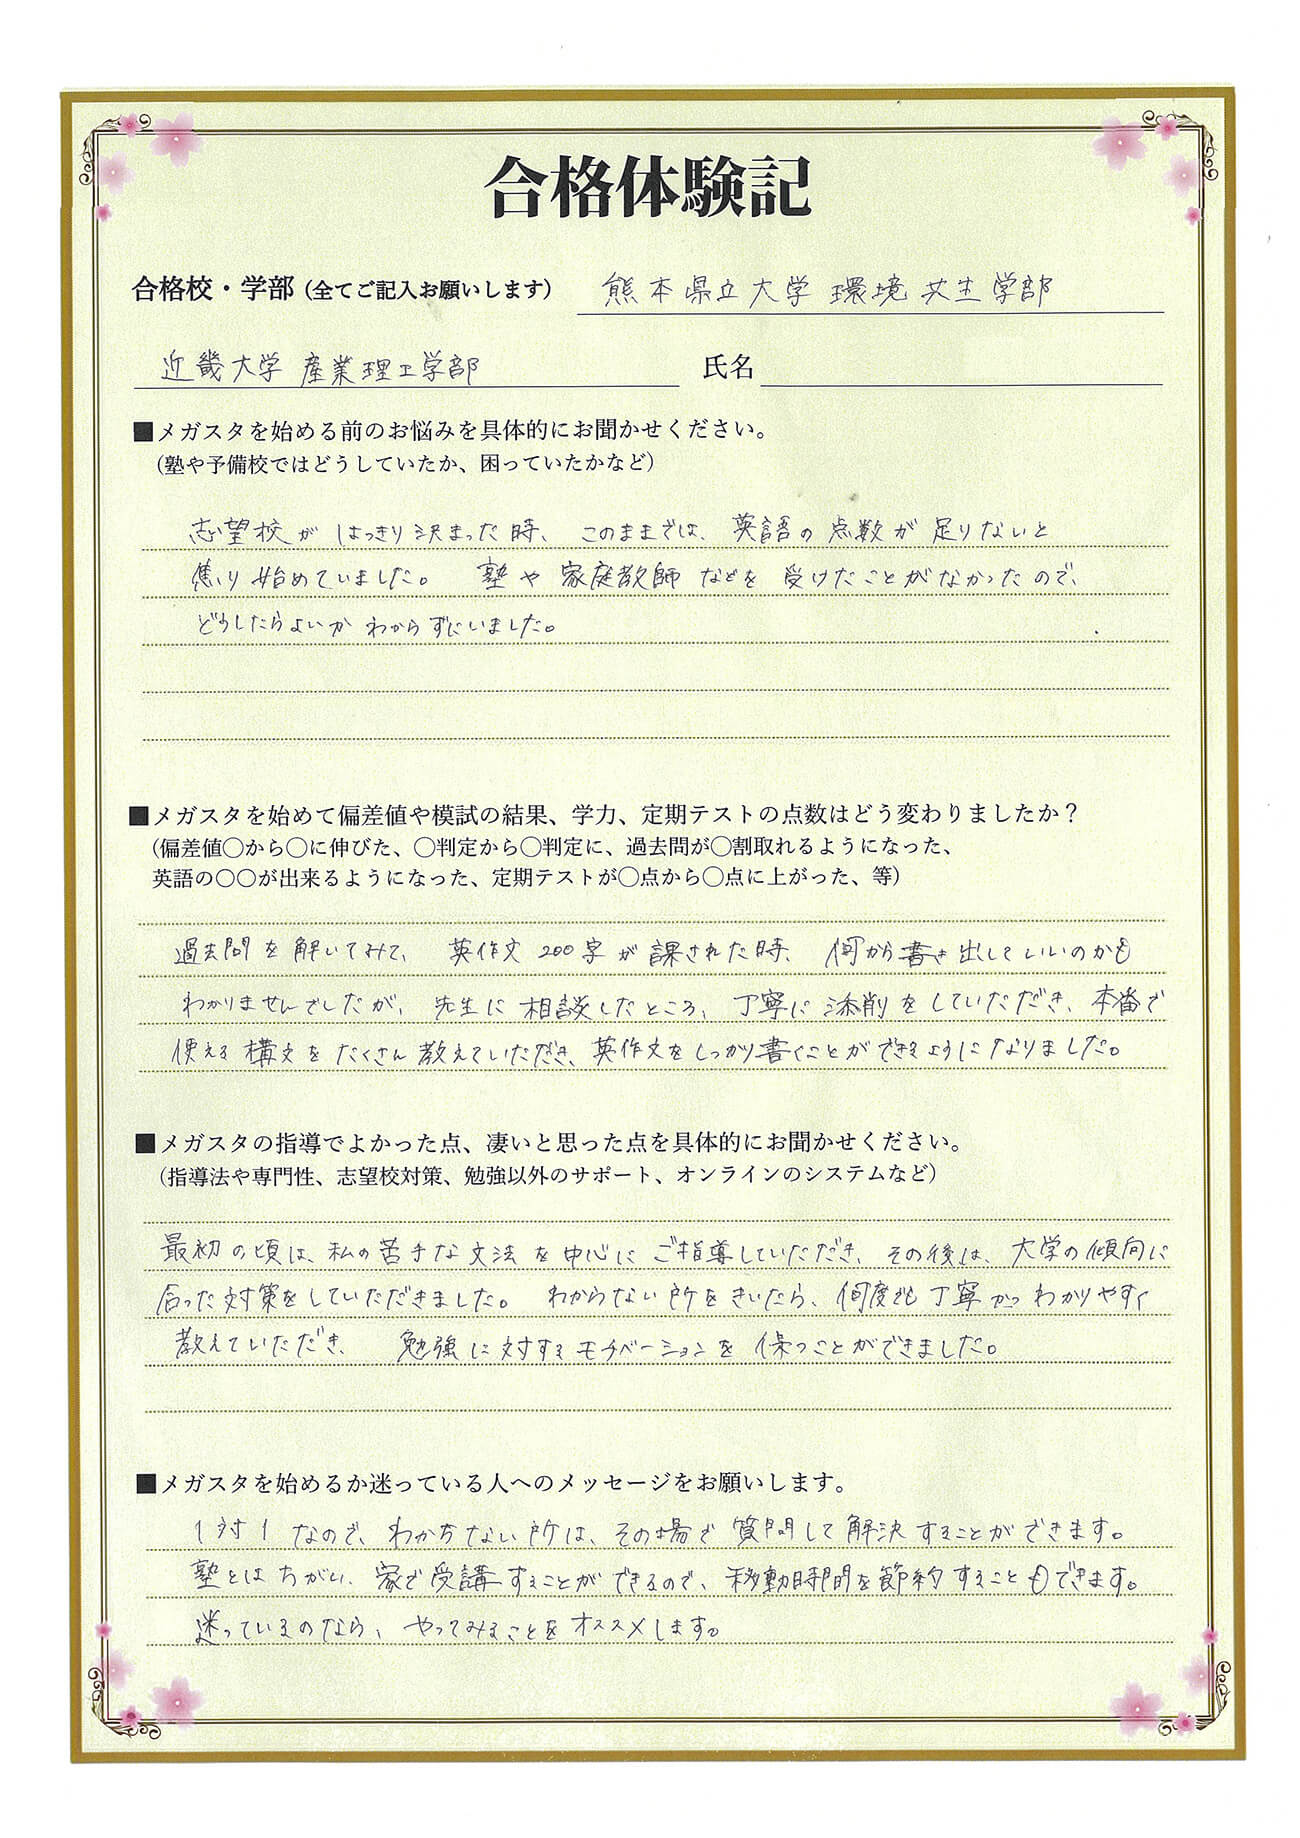 合格体験記
合格校・学部（全てご記入お願いします） 熊本県立大学 環境共生学部
近畿大学 産業理工学部 氏名
■メガスタを始める前のお悩みを具体的にお聞かせください。
（塾や予備校ではどうしていたか、困っていたかなど）
志望校が はっきり決まった時、このままでは、英語の点数が足りないと
焦り始めていました。 塾や家庭教師などを受けたことがなかったので、
どうしたらよいかわからずにいました。
■メガスタを始めて偏差値や模試の結果、学力、定期テストの点数はどう変わりましたか？
（偏差値〇から〇に伸びた、〇判定から〇判定に、過去問が〇割取れるようになった、
英語の〇〇が出来るようになった、定期テストが〇点から〇点に上がった、等）
過去問を解いてみて、 英作文200字が課された時、何から書き出していいのかも
わかりませんでしたが、先生に相談したところ、丁寧に添削をしていただき、本番で
使える構文をたくさん教えていただき、英作文をしっかり書くことができるようになりました。
■メガスタの指導でよかった点、凄いと思った点を具体的にお聞かせください。
（指導法や専門性、志望校対策、勉強以外のサポート、オンラインのシステムなど）
最初の頃は、私の苦手な文法を中心にご指導していただき、その後は、大学の傾向に
合った対策をしていただきました。 わからない所をきいたら、何度も丁寧かつわかりやすく
教えていただき、 勉強に対するモチベーションを保つことができました。
■メガスタを始めるか迷っている人へのメッセージをお願いします。
1対1なので、わからない所は、その場で質問して解決することができます。
塾とはちがい、家で受講することができるので、移動時間を節約することもできます。
迷っているのなら、やってみることをオススメします。